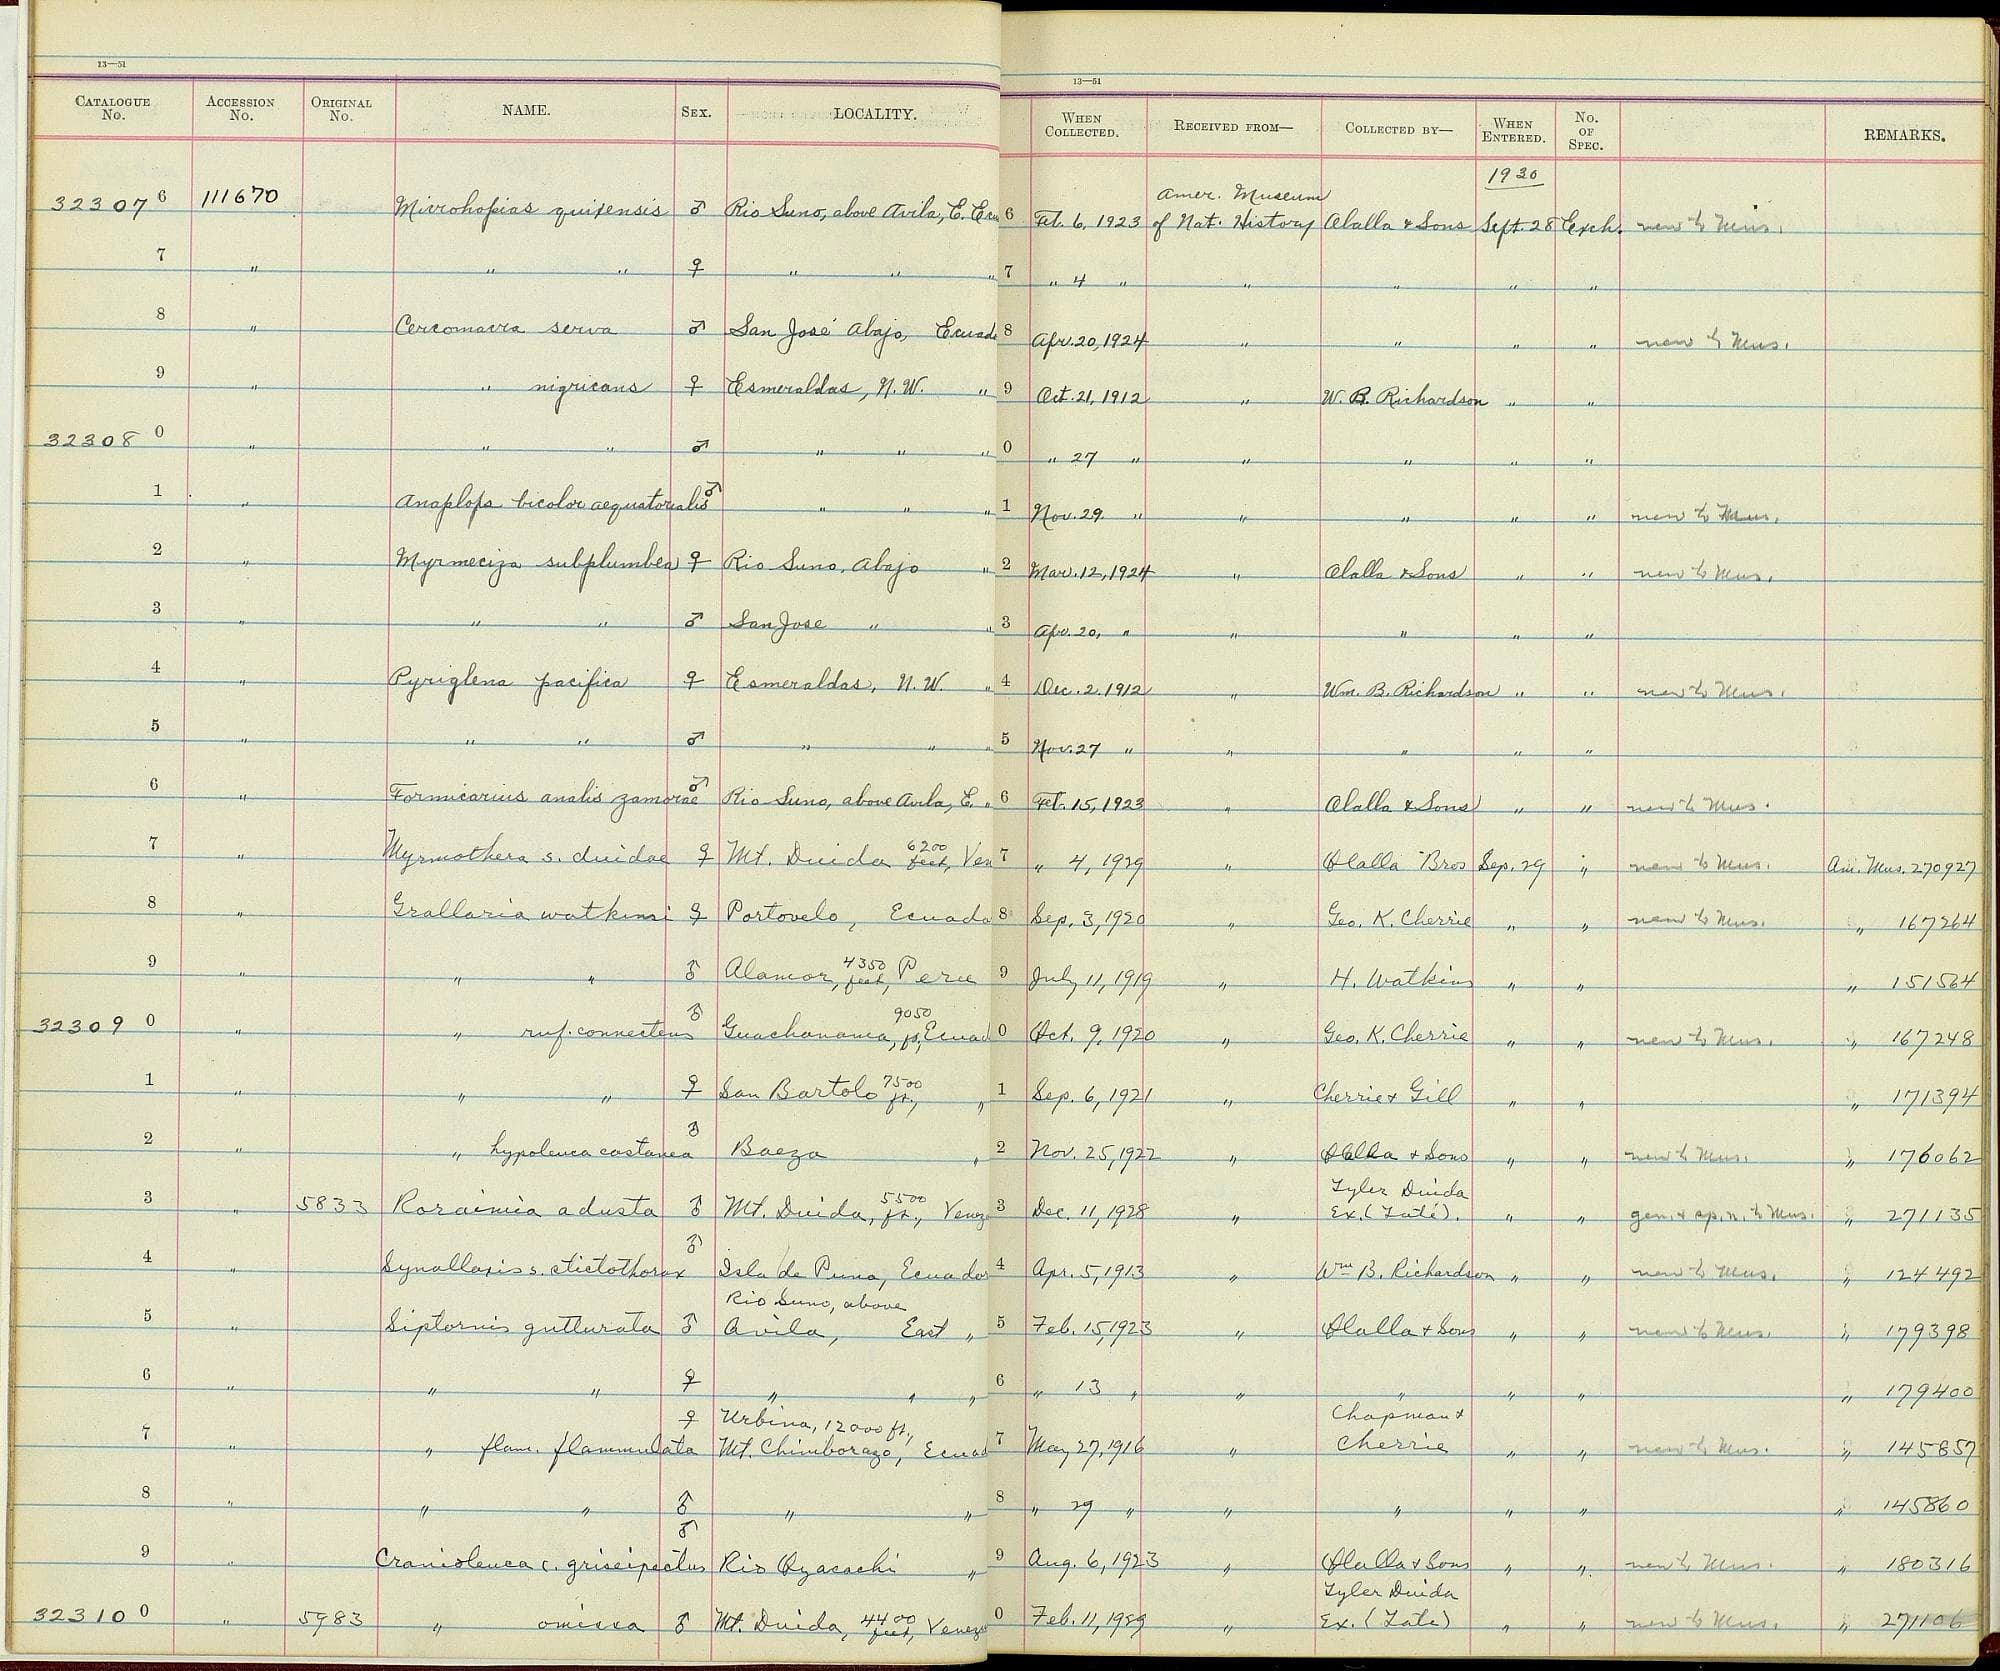 13—51
13—51
CATALOGUE No. ACCESSION No. ORIGINAL No. NAME. SEX. LOCALITY. WHEN COLLECTED. RECEIVED FROM— COLLECTED BY— WHEN ENTERED. No. OF SPEC. REMARKS.
1930
Amer. Museum
32307 6 111670 Microhopias quixensis ♂ Rio Suno, above Avila, E. Ecua 6 Feb. 6, 1923 of Nat. History Olalla & Sons Sept. 28 Exch. new to Mus.
7 " " " ♀ " " " 7 " 4 " " " " "
8 " Cercomacra serva ♂ San José Abajo, Ecuado 8 Apr. 20, 1924 " " " " new to Mus.
9 " " nigricans ♀ Esmeraldas, N.W. " 9 Oct. 21, 1912 " W. B. Richardson " "
32308 0 " " " ♂ " " " 0 " 27 " " " " "
1 " Anaplops bicolor aequatorialis ♂ " " " 1 Nov. 29. " " " " " new to Mus.
2 " Myrmeciza subplumbea ♀ Rio Suno, Abajo " 2 Mar. 12, 1924 " Olalla & Sons " " new to Mus.
3 " " " ♂ San Jose " " 3 Apr. 20, " " " " "
4 " Pyriglena pacifica ♀ Esmeraldas, N.W. " 4 Dec. 2. 1912 " Wm. B. Richardson " " new to Mus.
5 " " " ♂ " " " 5 Nov. 27 " " " " "
6 " Formicarius analis zamorae ♂ Rio Suno, above Avila, E. " 6 Feb. 15, 1923 " Olalla & Sons " " new to Mus.
7 " Myrmothera s. duidae ♀ Mt. Duida 6200 feet, Ven 7 " 4, 1929 " Olalla Bros Sep. 29 " new to Mus. Am. Mus. 270927
8 " Grallaria watkinsi ♀ Portovelo, Ecuado 8 Sep. 3, 1920 " Geo. K. Cherrie " " new to Mus. " 167264
9 " " " ♂ Alamor, 4350 feet, Peru 9 July 11, 1919 " H. Watkins " " " 151564
32309 0 " " ruf. connectens ♂ Guachanama, 9050 ft, Ecuad 0 Oct. 9, 1920 " Geo. K. Cherrie " " new to Mus. " 167248
1 " " " ♀ San Bartolo 7500 ft., " 1 Sep. 6, 1921 " Cherrie & Gill " " " 171394
2 " " hypoleuca castanea ♂ Baeza " 2 Nov. 25, 1922 " Olalla & Sons " " new to Mus. " 176062
3 " 5833 Roraimia adusta ♂ Mt. Duida, 5500 ft., Venez 3 Dec. 11, 1928 " Tyler Duida Ex. (Tate). " " gen. & sp. n. to Mus. " 271135
4 " Synallaxis s. stictothorax ♂ Isla de Puna, Ecuador 4 Apr. 5, 1913 " Wm B. Richardson " " new to Mus. " 124492
Rio Suno, above
5 " Siptornis gutturata ♂ Avila, East " 5 Feb. 15, 1923 " Olalla & Sons " " new to Mus. " 179398
6 " " " ♀ " " " 6 " 13 " " " " " " 179400
♀ Urbina, 12000 ft., Chapman &
7 " " flam. flammulata Mt. Chimborazo, Ecuad 7 May 27, 1916 " Cherrie " " new to Mus. " 145857
8 " " " ♂ " " 8 " 29 " " " " " " 145860
9 " Cranioleuca c. griseipectus ♂ Rio Oyacachi " 9 Aug. 6, 1923 " Olalla & Sons " " new to Mus. " 180316
Tyler Duida
32310 0 " 5983 " omissa ♂ Mt. Duida, 4400 feet, Venez 0 Feb. 11, 1929 " Ex. (Tate) " " new to Mus. " 271106